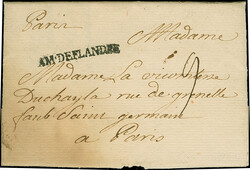 Paris Madame
AM·DEFLANDRE
Madame La vicomtesse 9
Duchayla rue de grenelle
faub Saint germain
a Paris